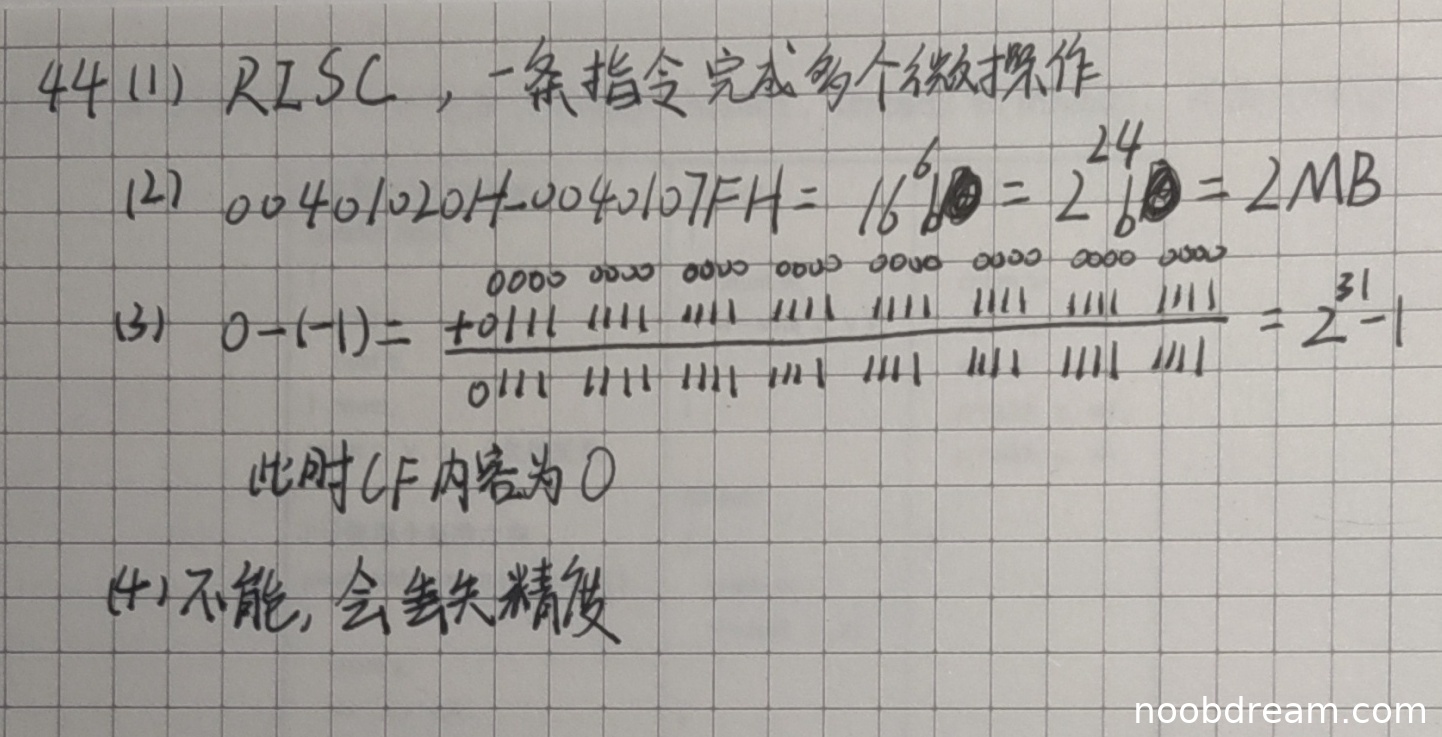 44 (1) RISC，一条指令完成多个微操作
(2) 00401020H-0040107FH = 16^6 b = 2^24 b = 2MB
0000 0000 0000 0000 0000 0000 0000 0000
(3) 0-(-1) = +0111 1111 1111 1111 1111 1111 1111 1111 = 2^31-1
0111 1111 1111 1111 1111 1111 1111 1111
此时CF内容为0
(4) 不能，会丢失精度
noobdream.com